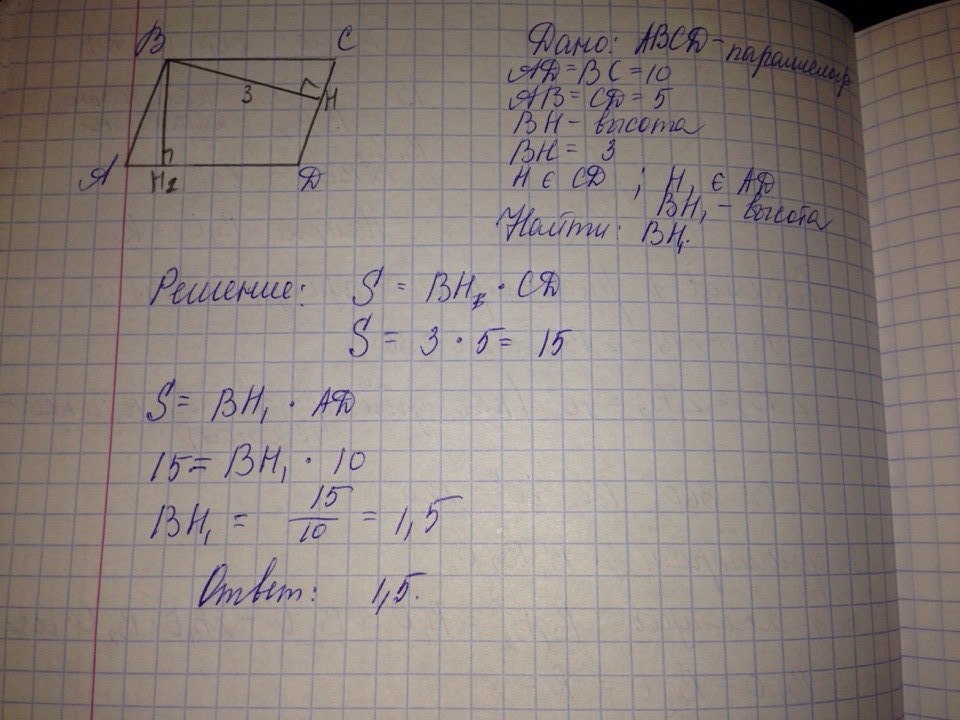 B C
3
H
A H₂ D
Дано: ABCD - параллелогр
AD = BC = 10
AB = CD = 5
BH - высота
BH = 3
H ∈ CD ; H₁ ∈ AD
BH₁ - высота
Найти: BH₁.
Решение: S = BH · CD
S = 3 · 5 = 15
S = BH₁ · AD
15 = BH₁ · 10
BH₁ = 15/10 = 1,5
Ответ: 1,5.